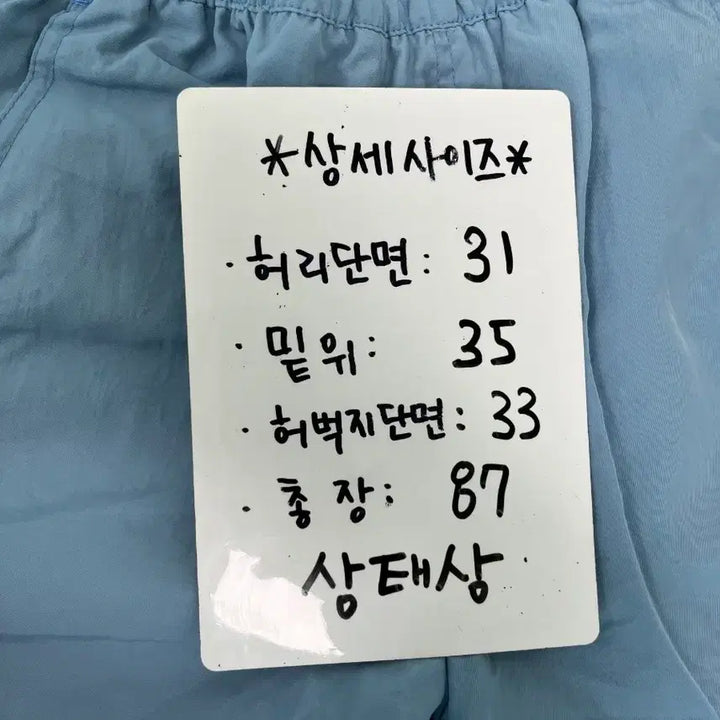 *상세사이즈*
· 허리단면: 31
· 밑위: 35
· 허벅지단면: 33
· 총장: 87
상태상